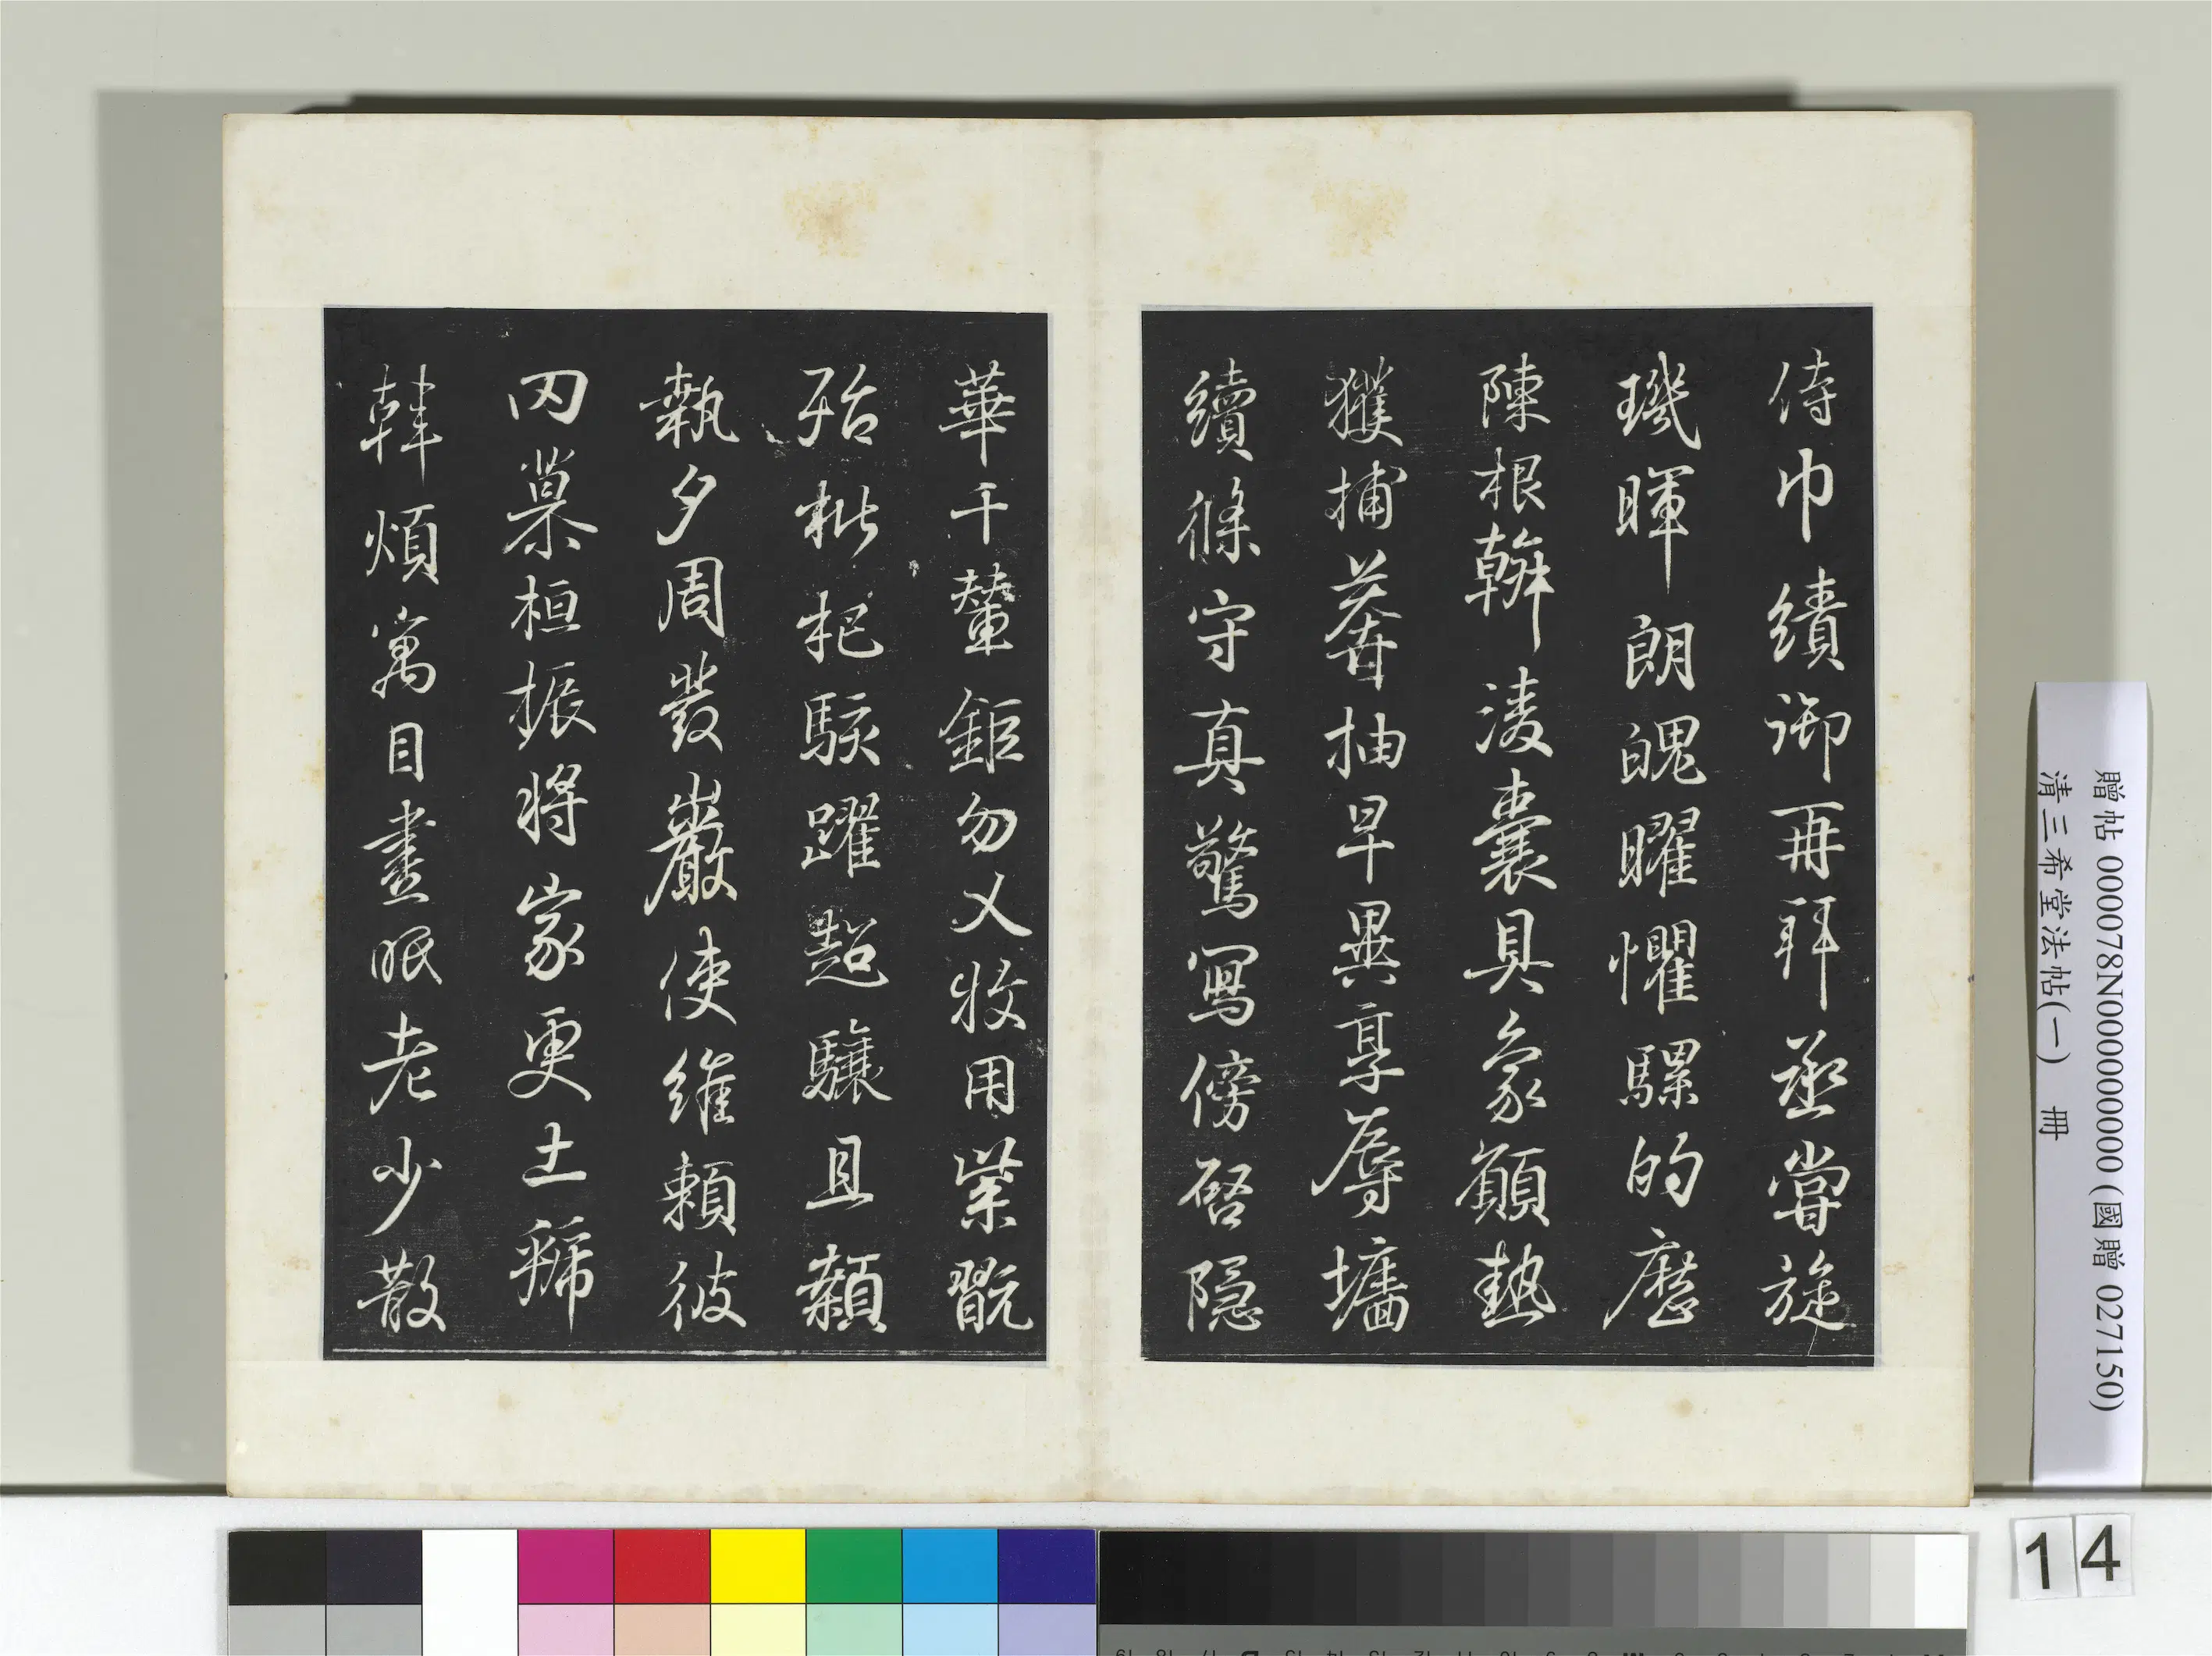 侍巾績御再拜烝嘗旋
璣暉朗魄曜懼騾的歷
陳根斡淩囊具象願熱
獲捕莽抽早異享辱墻
續條守真驚寫傍啓隱
華千輦鉅勿乂牧用紫翫
殆枇杷駭躍超驤且顙
執夕周發巖使維賴彼
慕桓振將家更土號
韓煩寓目晝眠老少散
贈帖 000078N000000000 (國贈 027150)
清三希堂法帖(一) 冊
14